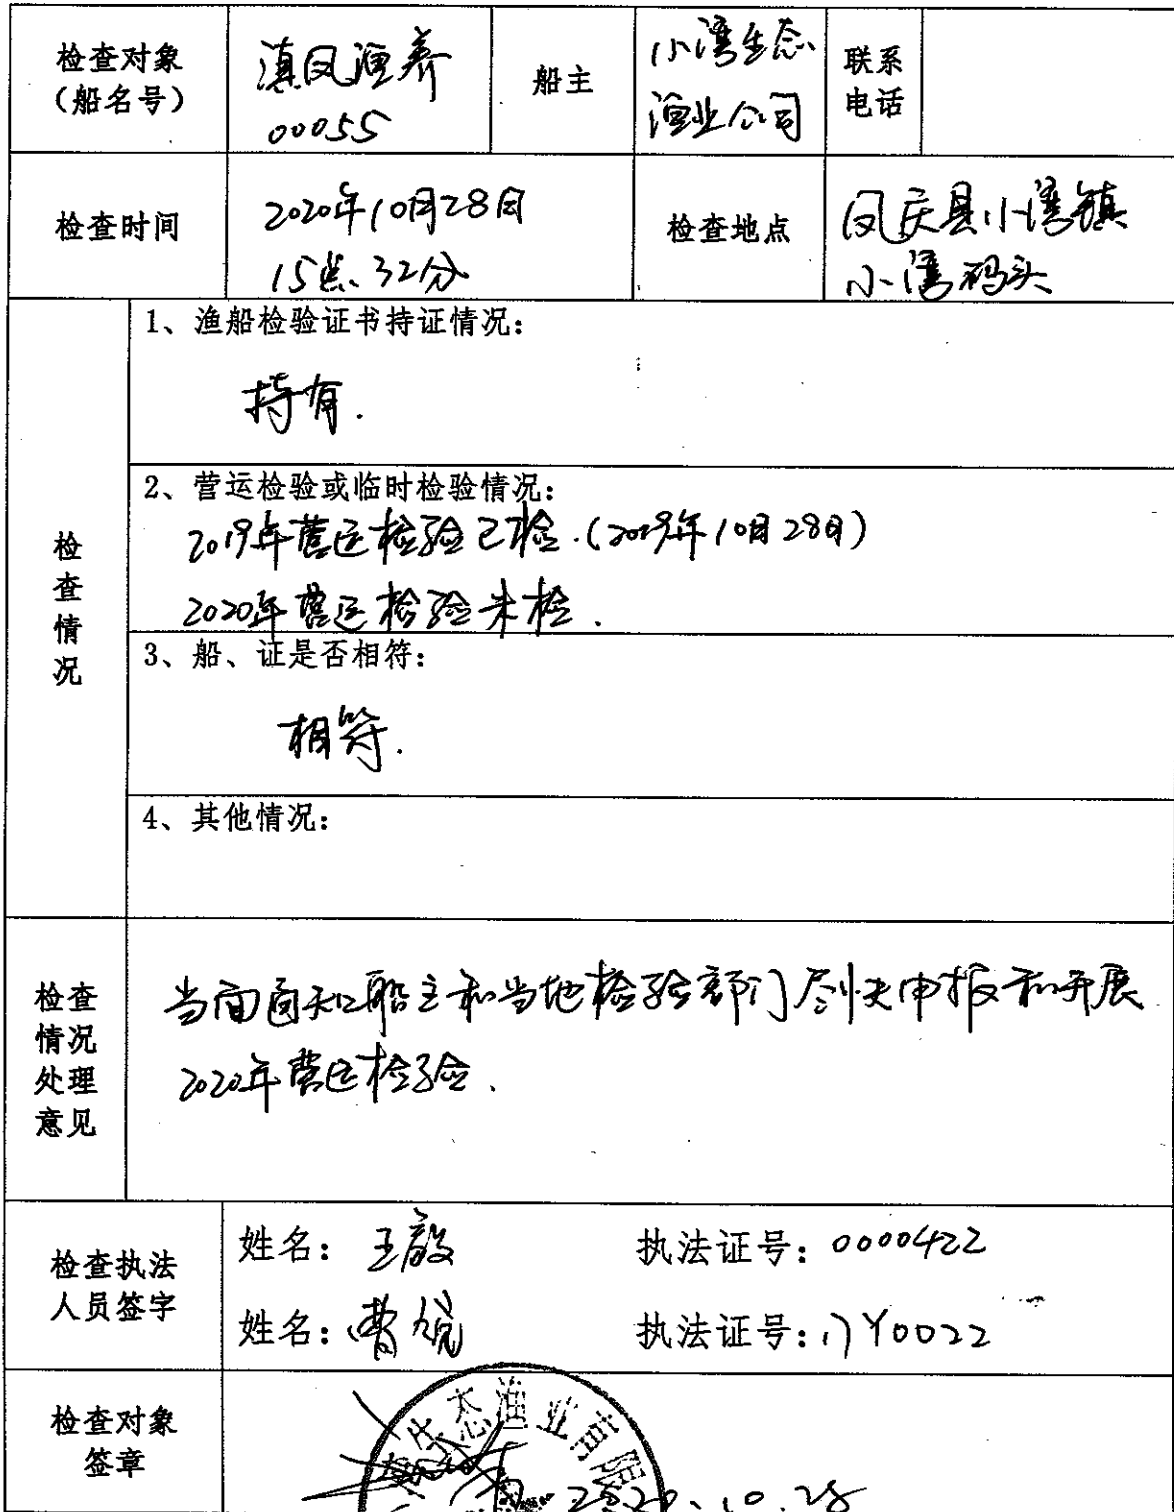 检查对象
（船名号）
滇凤渔养
00055
船主
小湾生态
渔业公司
联系
电话
检查时间
2020年10月28日
15点32分
检查地点
凤庆县小湾镇
小湾码头
检查情况
1、渔船检验证书持证情况：
持有.
2、营运检验或临时检验情况：
2019年营运检验已检.(2019年10月28日)
2020年营运检验未检.
3、船、证是否相符：
相符.
4、其他情况：
检查
情况
处理
意见
当面通知船主和当地检验部门尽快申报和开展
2020年营运检验.
检查执法
人员签字
姓名：王毅
执法证号：0000422
姓名：曹
执法证号：Y0022
检查对象
签章
生态渔业有限
2020.10.28